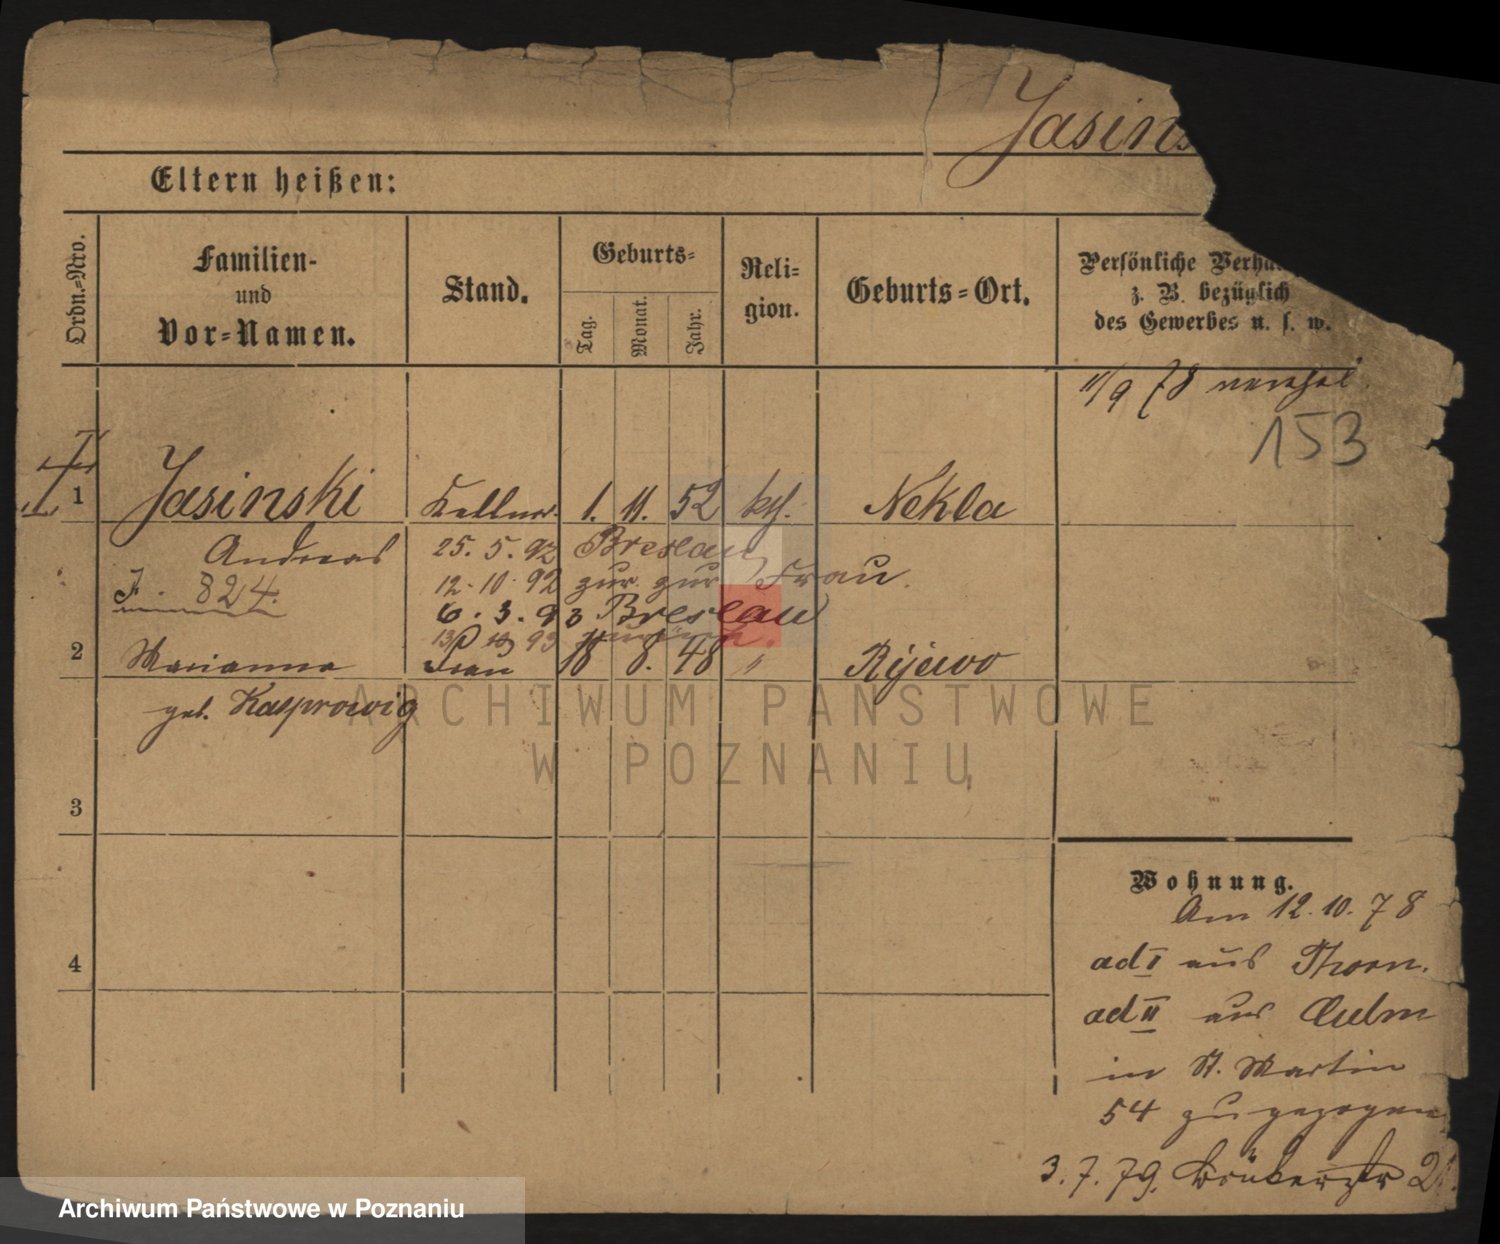 Jasins
Eltern heißen:
Ordn.=Nro.
Familien-
und
Vor=Namen.
Stand.
Geburts=
Tag.
Monat.
Jahr.
Reli=
gion.
Geburts=Ort.
Persönliche Verhä
z. B. bezüglich
des Gewerbes u. s. w.
11/9 78
153
1 Jasinski Kellner 1. 11. 52 kth. Nekla
Andreas 25. 5. 92 Breslau
12. 10. 92 zur Frau.
J. 824.
6. 3. 93 Breslau
93
2 Marianna Frau 18 8. 48 " Rijewo
geb. Kasprowig
ARCHIWUM PAŃSTWOWE
W POZNANIU
3
4
Wohnung.
Am 12. 10. 78
ad I aus Thorn.
ad II aus Culm
in St. Martin
54 zugezogen
3. 7. 79.
Archiwum Państwowe w Poznaniu